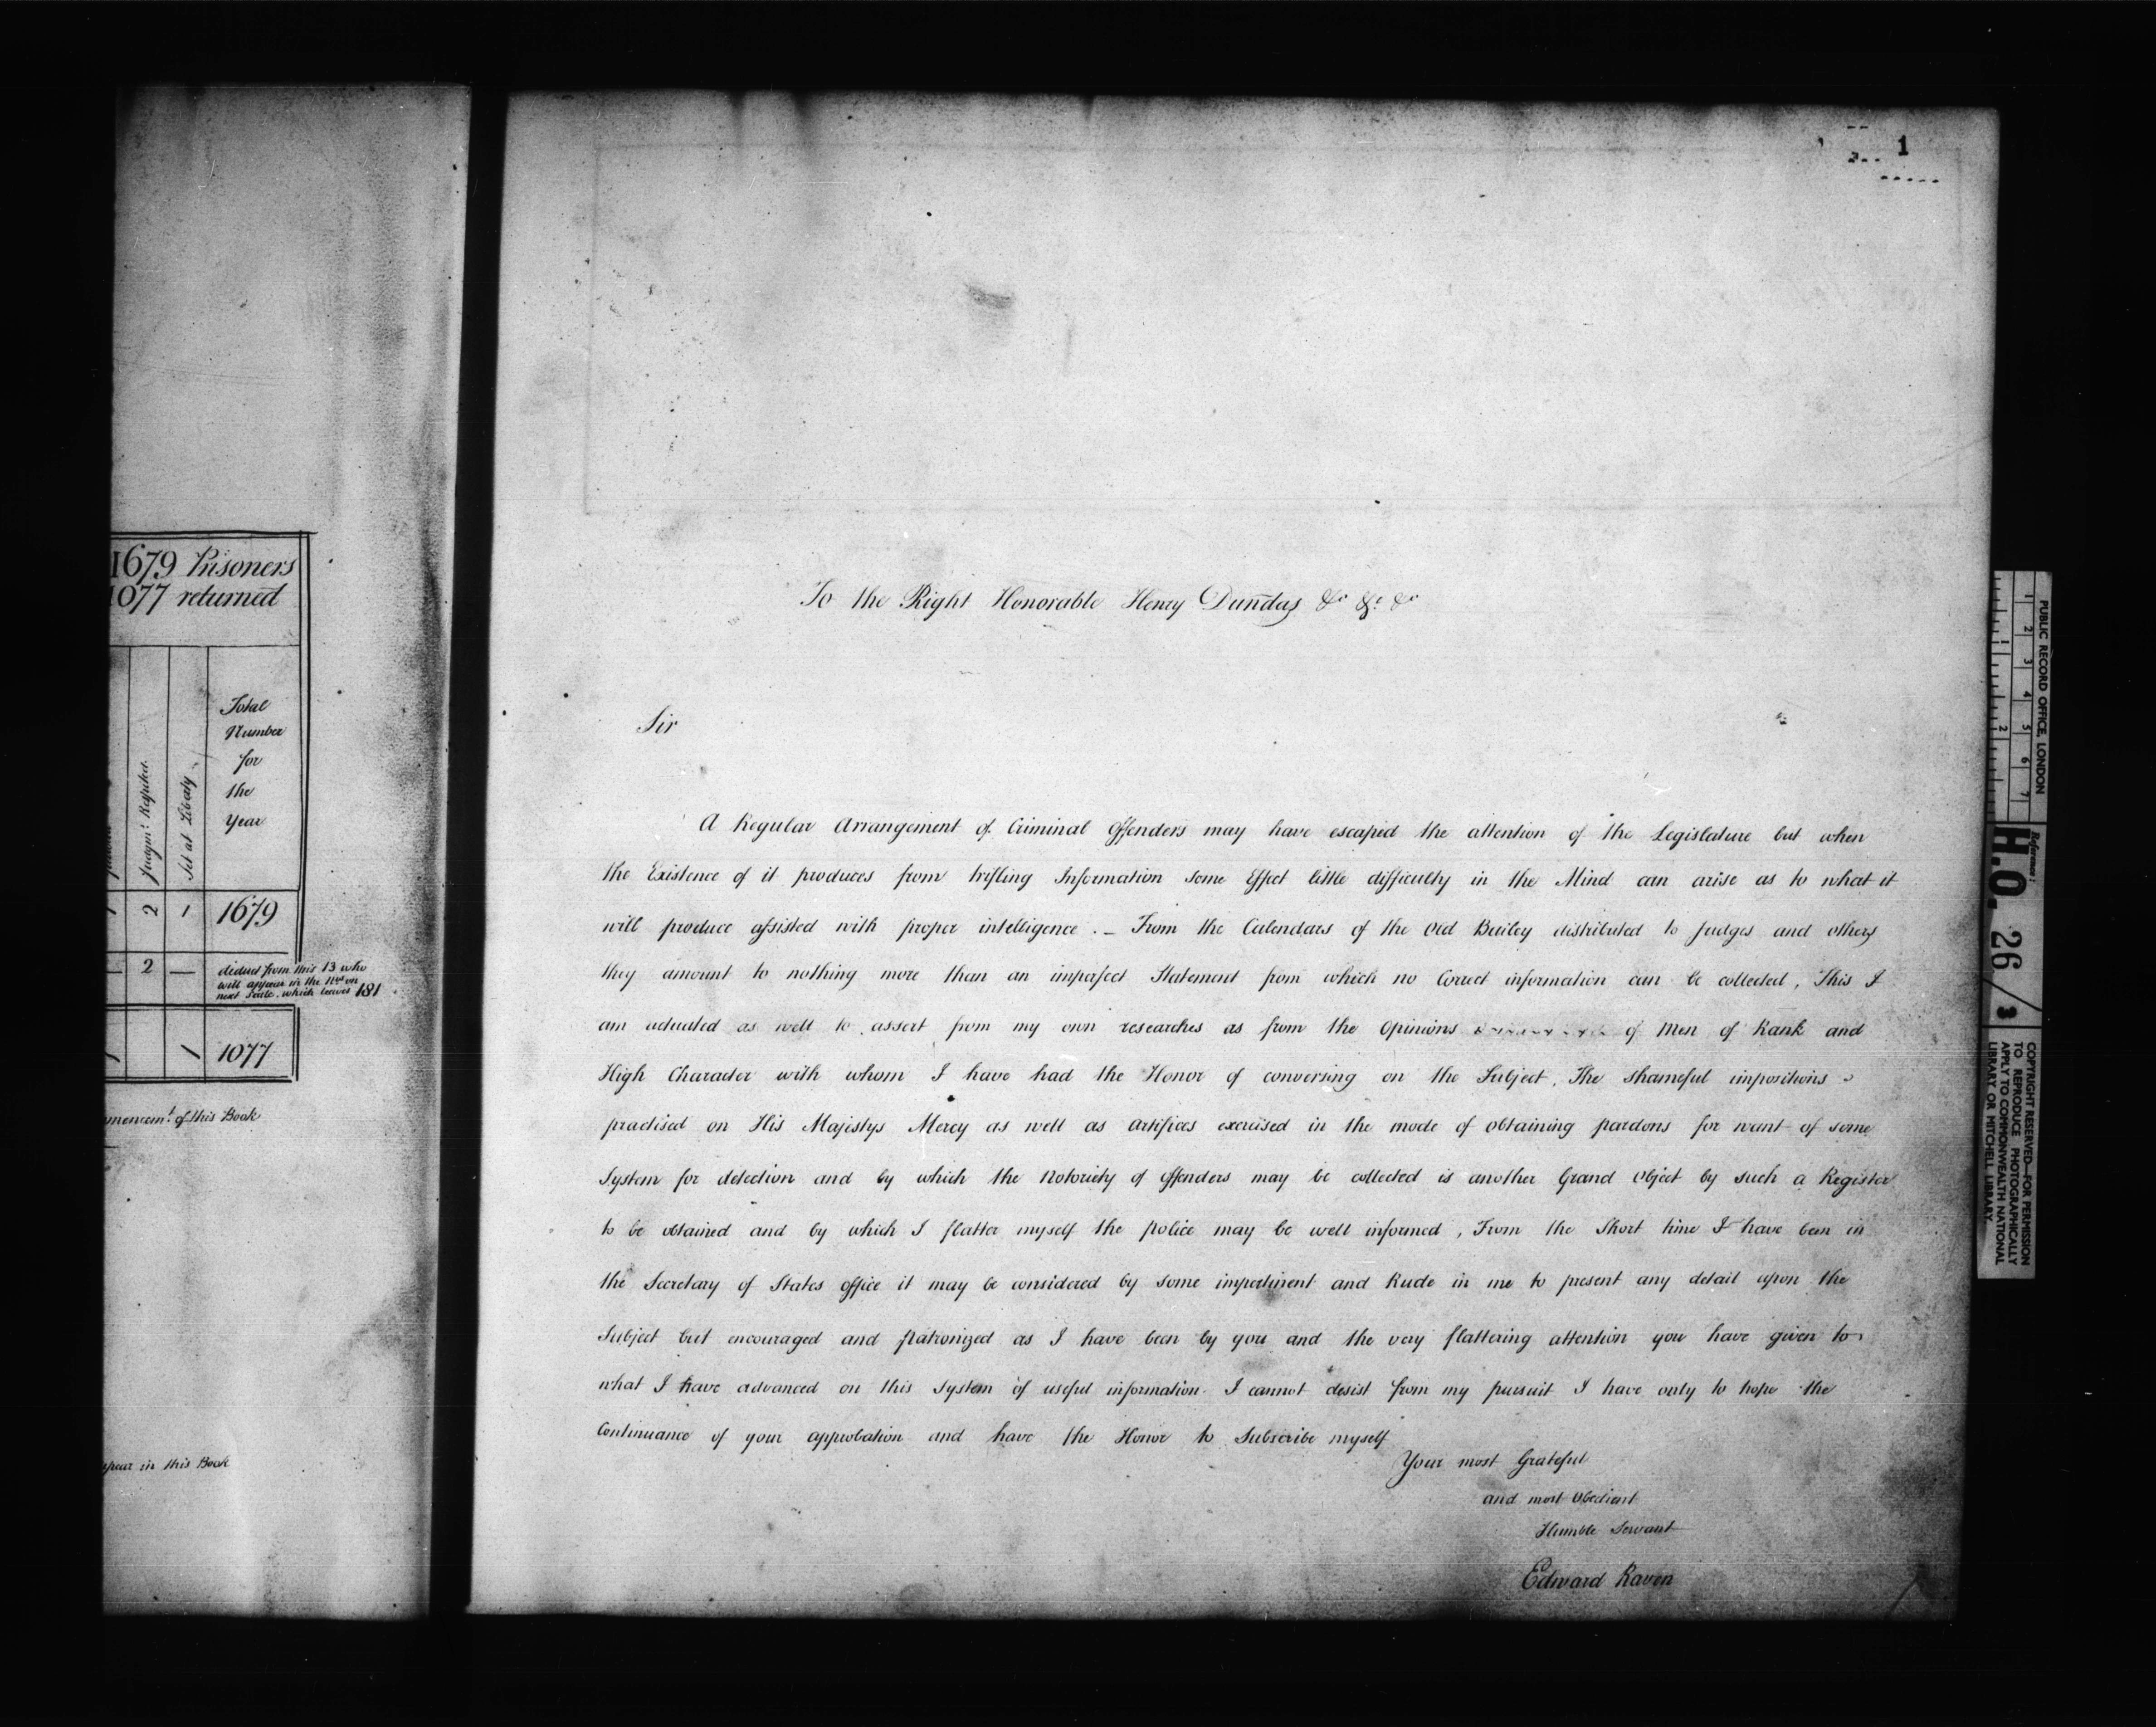 1679 Prisoners
1077 returned
Judgmt. Respited
Set at Liberty
Total
Number
for
the
Year
2 1 1679
2 — deduct from this 13 who
will appear in the on
next Scale, which leaves 181
1 1077
of this Book
in this Book
1
To the Right Honorable Henry Dundas &c &c &c
Sir
A Regular Arrangement of Criminal offenders may have escaped the attention of the Legislature but when
the Existence of it produces from trifling Information some Effect little difficulty in the Mind can arise as to what it
will produce assisted with proper intelligence . – From the Calendars of the Old Bailey distributed to Judges and others
they amount to nothing more than an imperfect Statement from which no Correct information can be collected, This I
am actuated as well to assert from my own researches as from the Opinions of Men of Rank and
High Character with whom I have had the Honor of conversing on the Subject, The shameful impositions
practised on His Majestys Mercy as well as artifices exercised in the mode of obtaining pardons for want of some
System for detection and by which the Notoriety of offenders may be collected is another Grand Object by such a Register
to be obtained and by which I flatter myself the police may be well informed, From the Short time I have been in
the Secretary of States office it may be considered by some impertinent and Rude in me to present any detail upon the
Subject but encouraged and patronized as I have been by you and the very flattering attention you have given to
what I have advanced on this System of useful information I cannot desist from my pursuit I have only to hope the
Continuance of your approbation and have the Honor to Subscribe myself
Your most Grateful
and most Obedient
Humble Servant
Edward Raven
PUBLIC RECORD OFFICE, LONDON
1 2 3 4 5 6 7
1 2
Reference:
H.O. 26/3
COPYRIGHT RESERVED—FOR PERMISSION
TO REPRODUCE PHOTOGRAPHICALLY
APPLY TO COMMONWEALTH NATIONAL
LIBRARY OR MITCHELL LIBRARY.